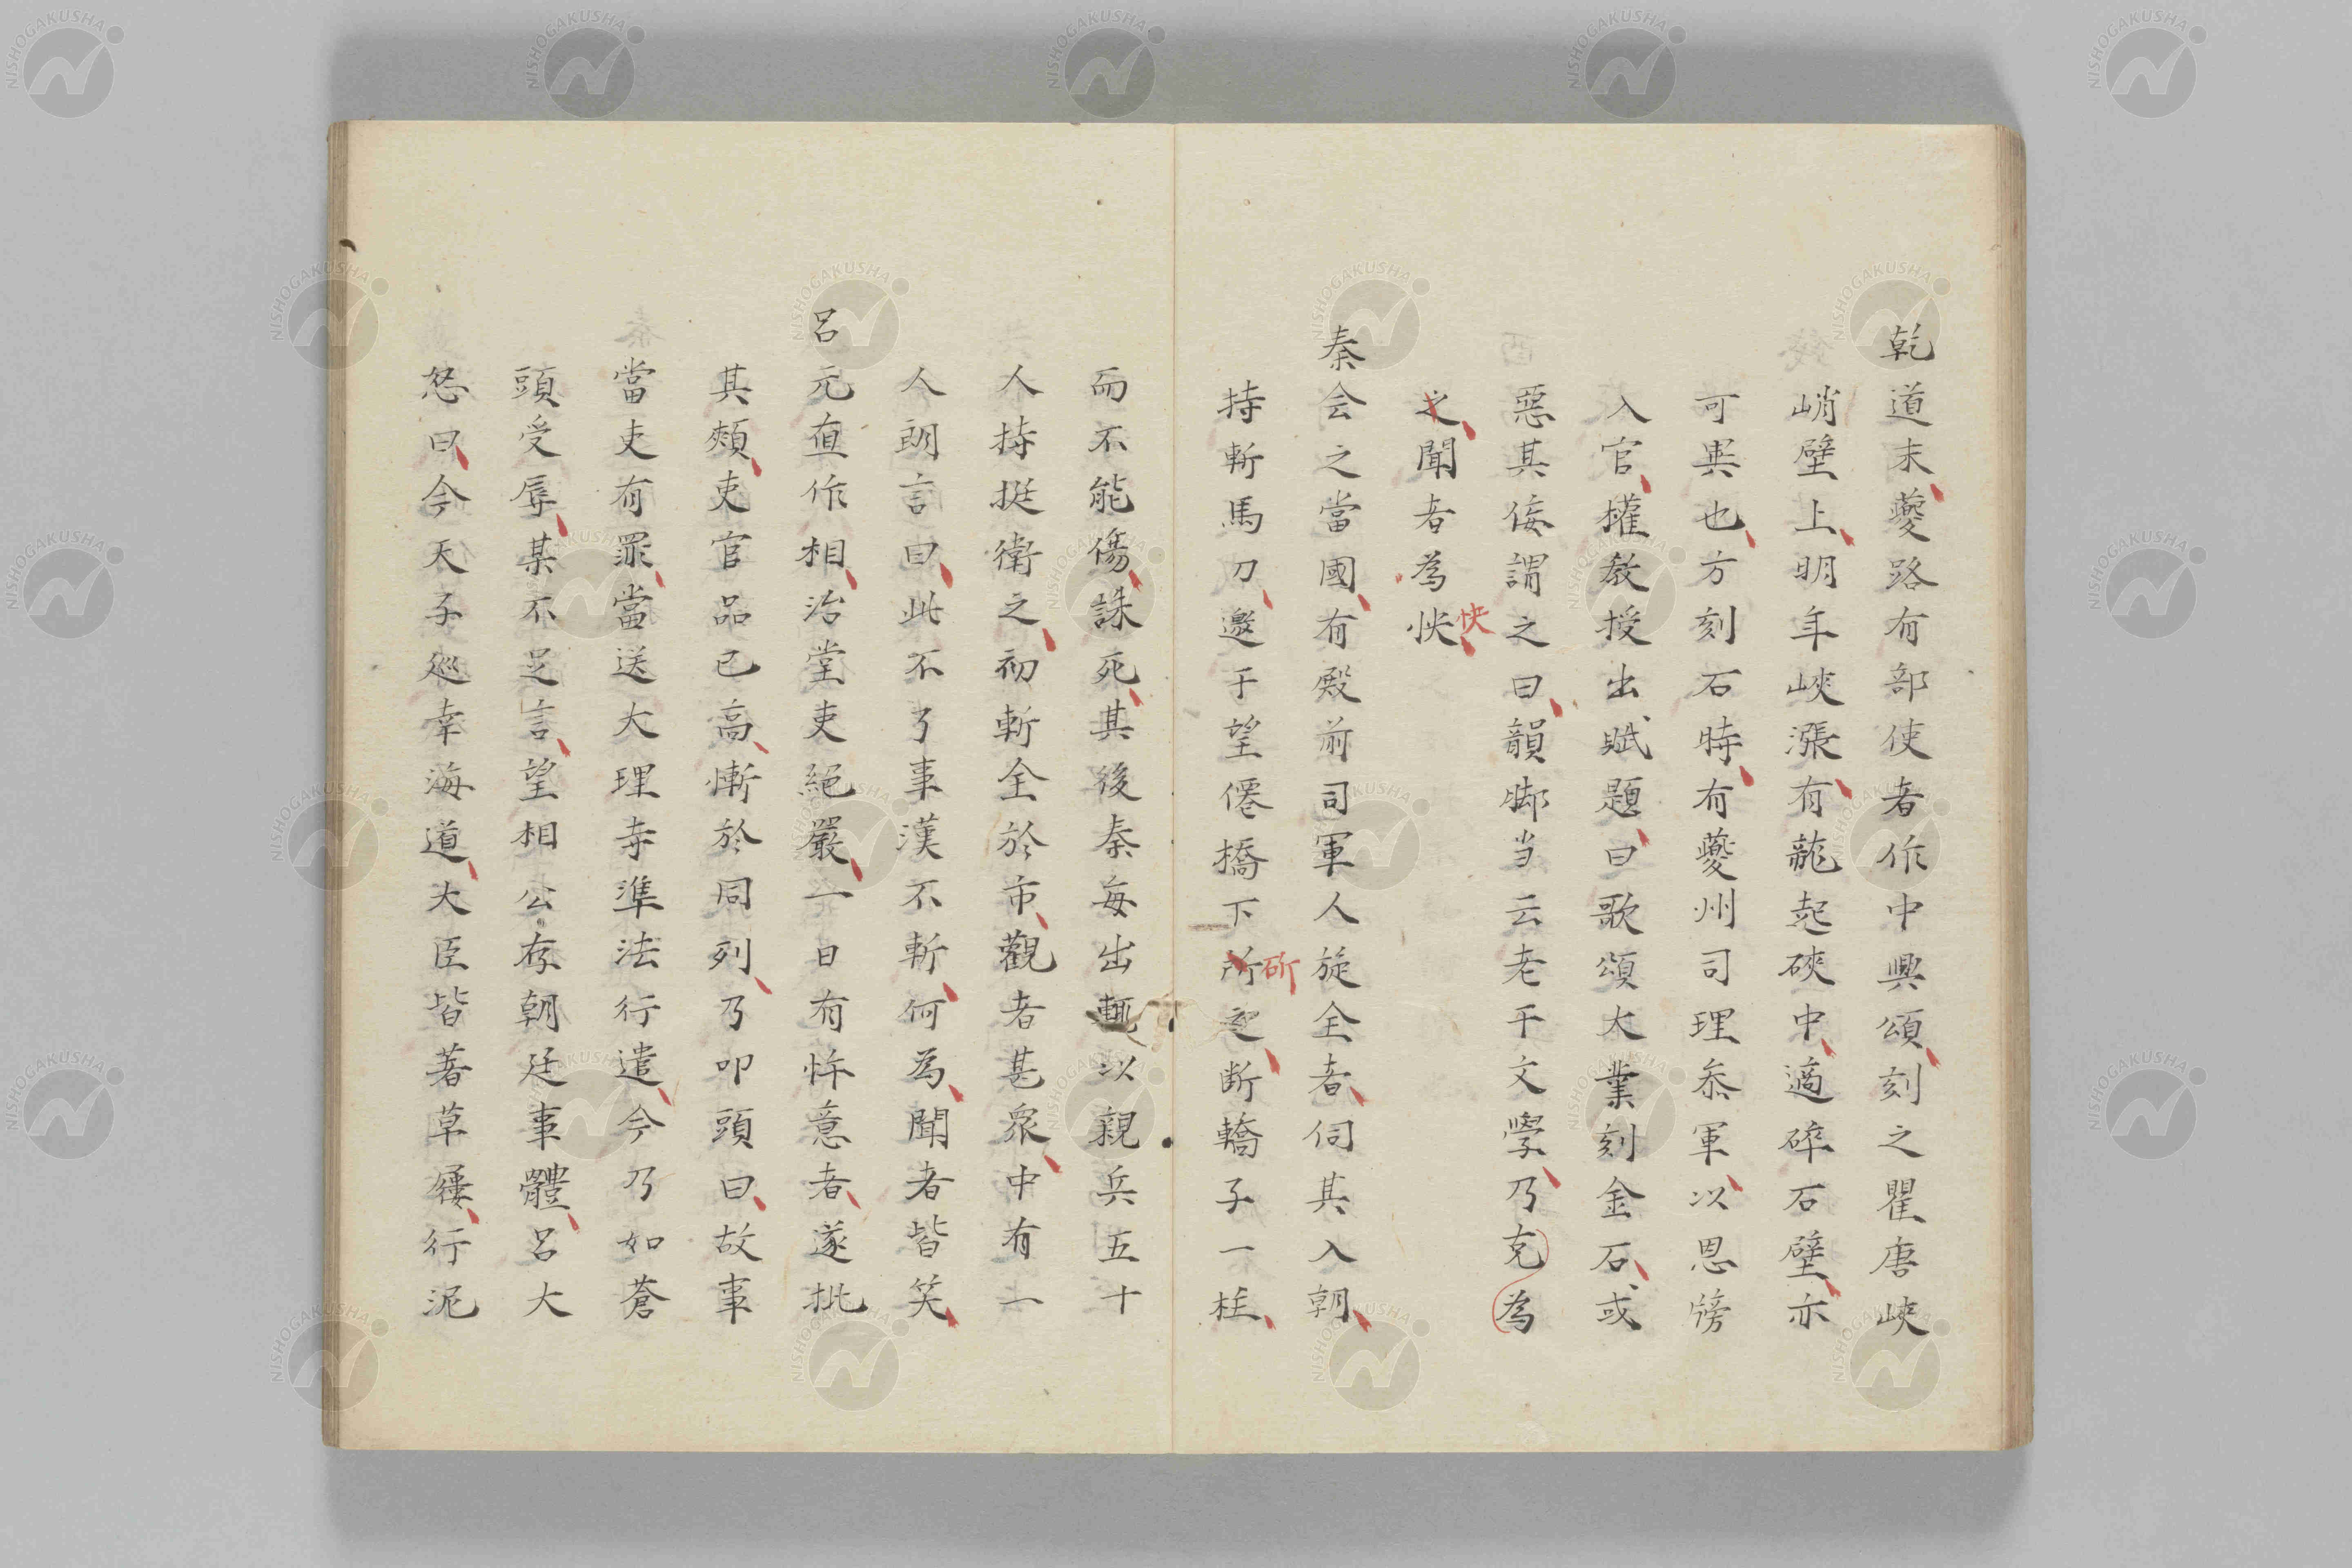 乾道末夔路有部使者作中興頌刻之瞿唐峽
峭壁上明年峽漲有龍起硤中適碎石壁亦
可異也方刻石時有夔州司理叅軍以恩牓
入官權教授出賦題曰歌頌大業刻金石或
惡其佞謂之曰韻脚当云老于文學乃克為
之聞者為快
快
秦会之當國有殿前司軍人旋全者伺其入朝
持斬馬刀邀于望僊橋下所之断轎子一柱
斫
而不能傷誅死其後秦每出輒以親兵五十
人持挺衛之初斬全於市觀者甚衆中有一
人朗言曰此不了事漢不斬何為聞者皆笑
呂元直作相治堂吏絕嚴一日有忤意者遂批
其頰吏官品已高慚於同列乃叩頭曰故事
當吏有罪當送大理寺準法行遣今乃如蒼
頭受辱某不足言望相公存朝廷事體呂大
怒曰今天子巡幸海道大臣皆著草屨行泥
NISHOGAKUSHA